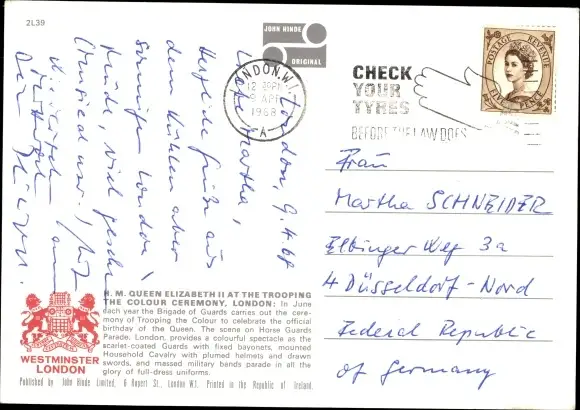 2L39
JOHN HINDE
ORIGINAL
LONDON. W.I.
12 30PM
9 APR
1968
A
CHECK
YOUR
TYRES
BEFORE THE LAW DOES
POSTAGE REVENUE
London, 9.4.68
Liebe Martha,
Herzliche Grüße aus
dem kühlen aber
sonnigen London!
Müde, viel gesehen
(Musical usw.)
Dein
H. M. QUEEN ELIZABETH II AT THE TROOPING
THE COLOUR CEREMONY, LONDON: In June
each year the Brigade of Guards carries out the cere-
mony of Trooping the Colour to celebrate the official
birthday of the Queen. The scene on Horse Guards
Parade, London, provides a colourful spectacle as the
scarlet-coated Guards with fixed bayonets, mounted
Household Cavalry with plumed helmets and drawn
swords, and massed military bands parade in all the
glory of full-dress uniforms.
WESTMINSTER
LONDON
Published by John Hinde Limited, 6 Rupert St., London W1. Printed in the Republic of Ireland.
Frau
Martha SCHNEIDER
Elbinger Weg 3a
4 Düsseldorf-Nord
Federal Republic
of Germany